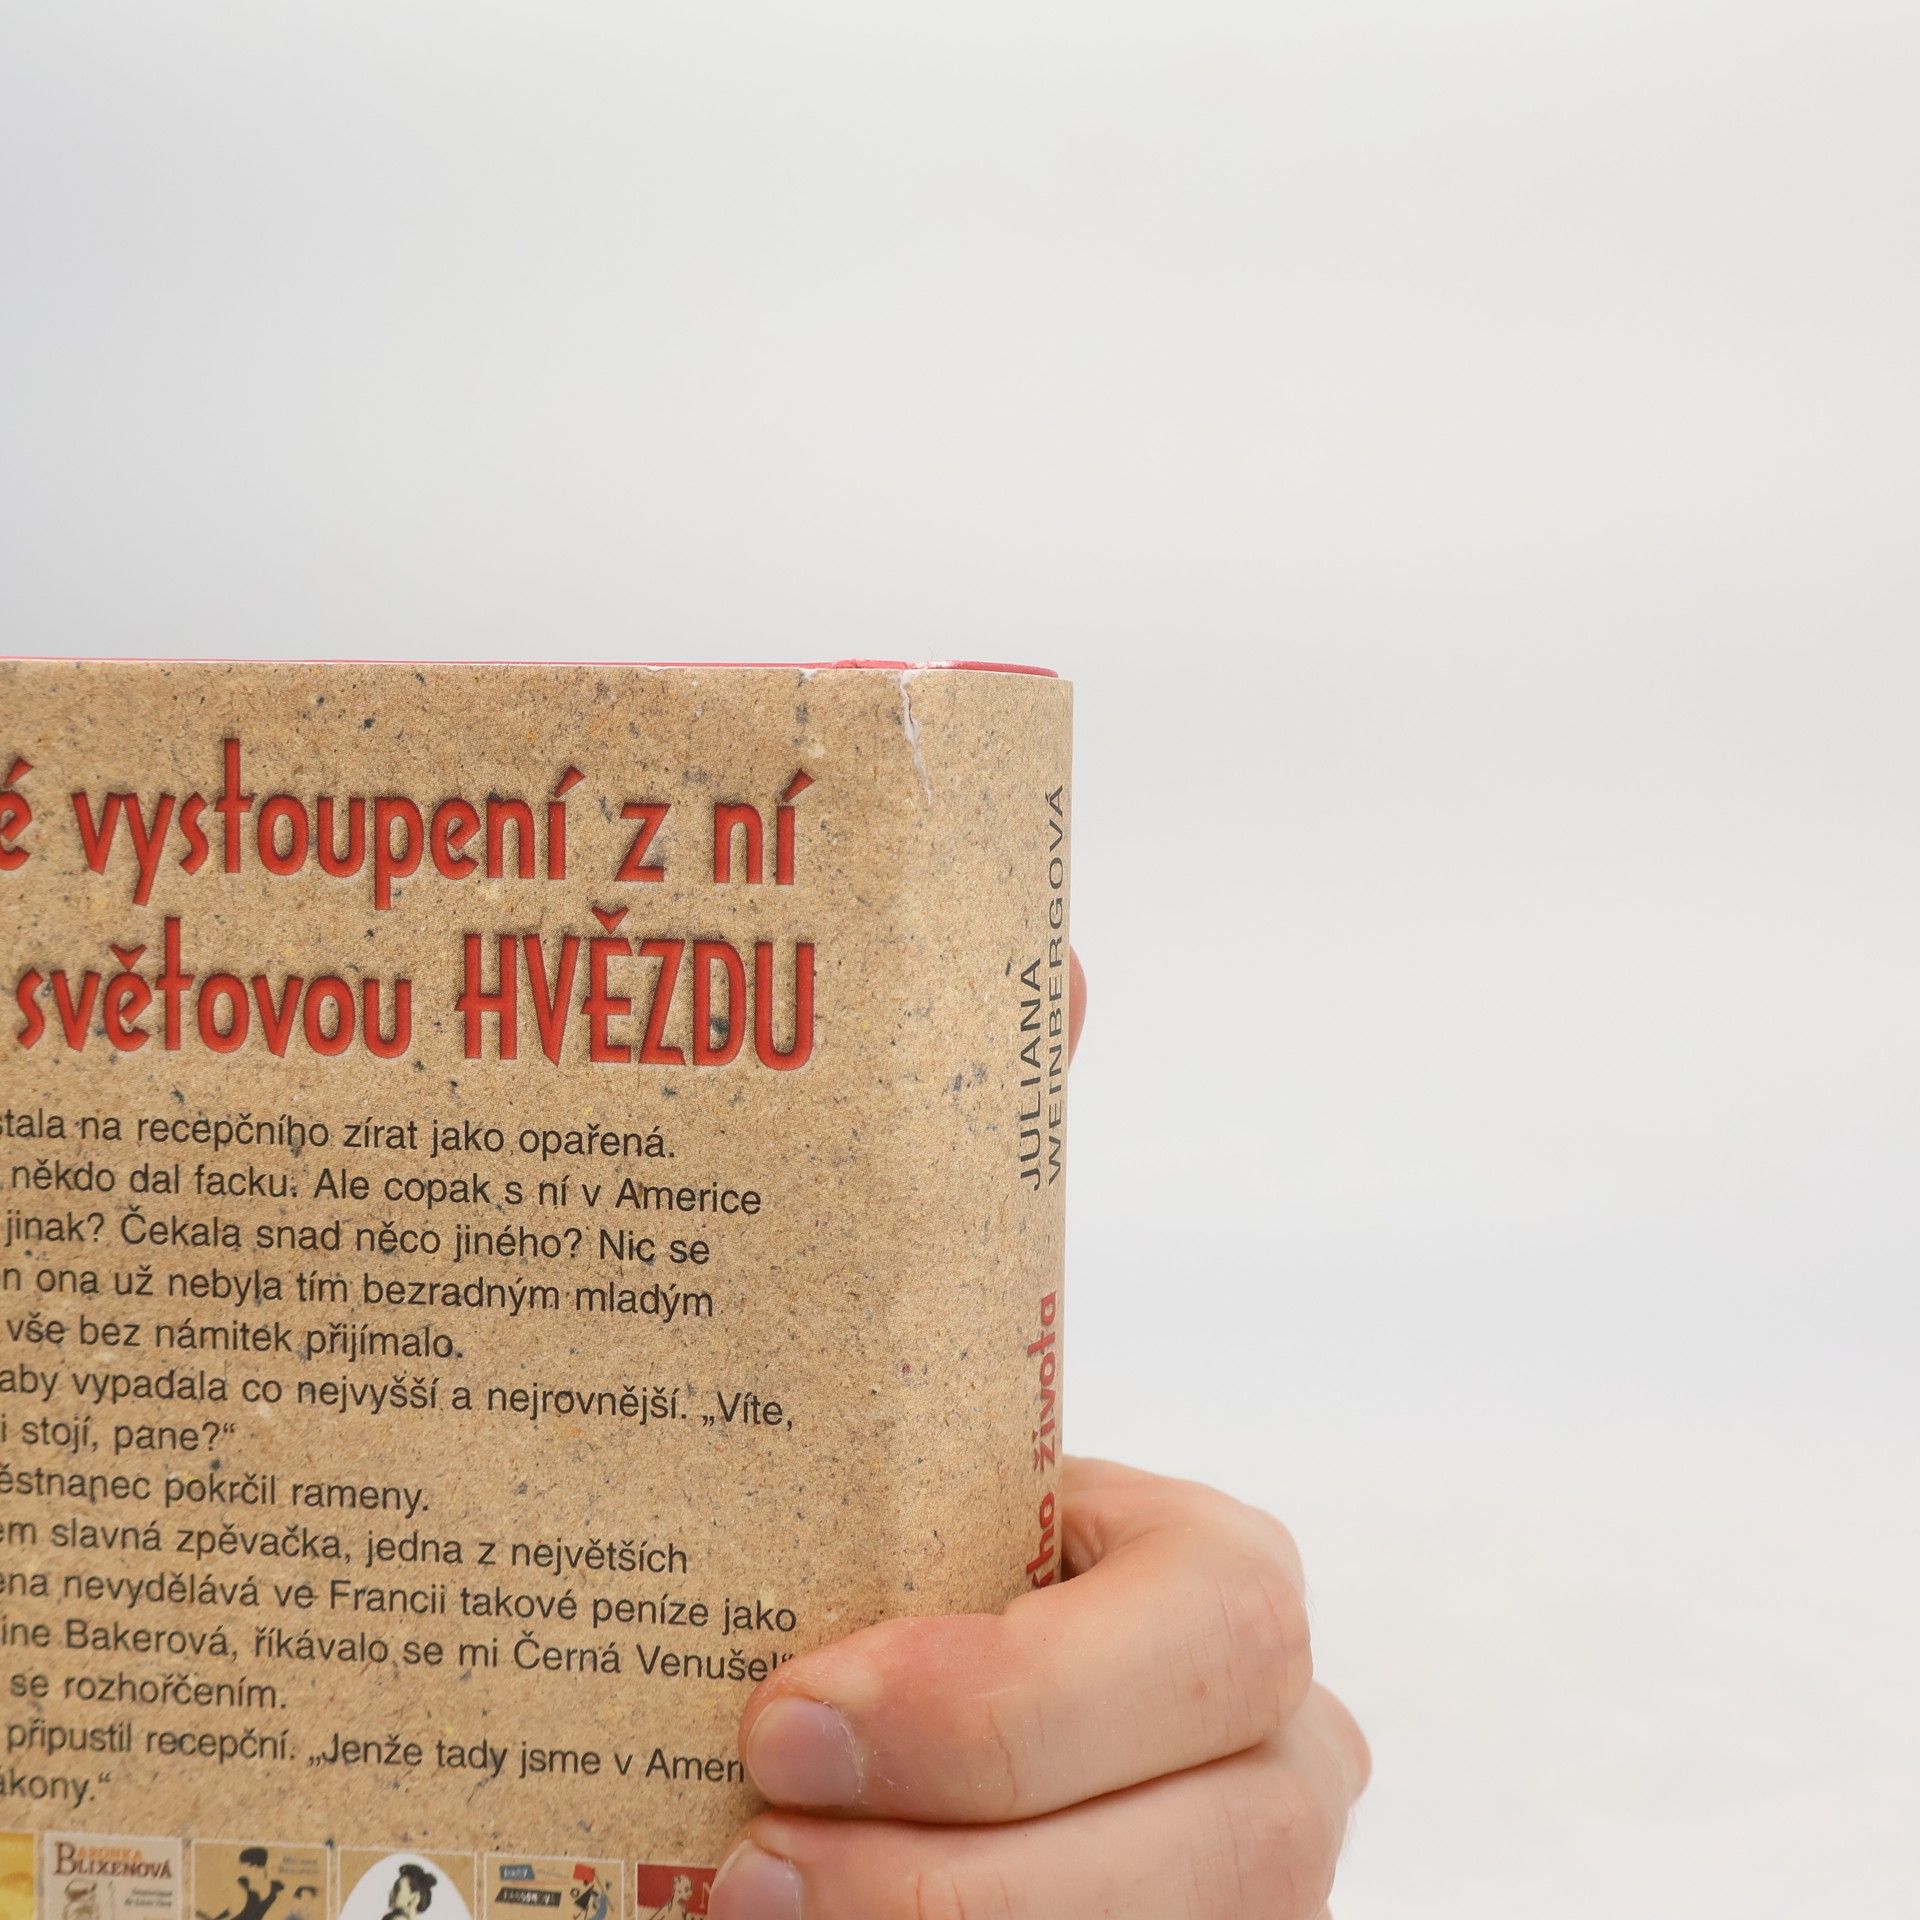 é vystoupení z ní
světovou HVĚZDU
stala na recepčního zírat jako opařená.
někdo dal facku. Ale copak s ní v Americe
jinak? Čekala snad něco jiného? Nic se
n ona už nebyla tím bezradným mladým
vše bez námitek přijímalo.
aby vypadala co nejvyšší a nejrovnější. „Víte,
i stojí, pane?“
ěstnanec pokrčil rameny.
em slavná zpěvačka, jedna z největších
ena nevydělává ve Francii takové peníze jako
ine Bakerová, říkávalo se mi Černá Venuše!“
se rozhořčením.
připustil recepční. „Jenže tady jsme v Ameri
ákony.“
BARONKA
BLIXENOVÁ
JULIANA
WEINBERGOVÁ
ího života